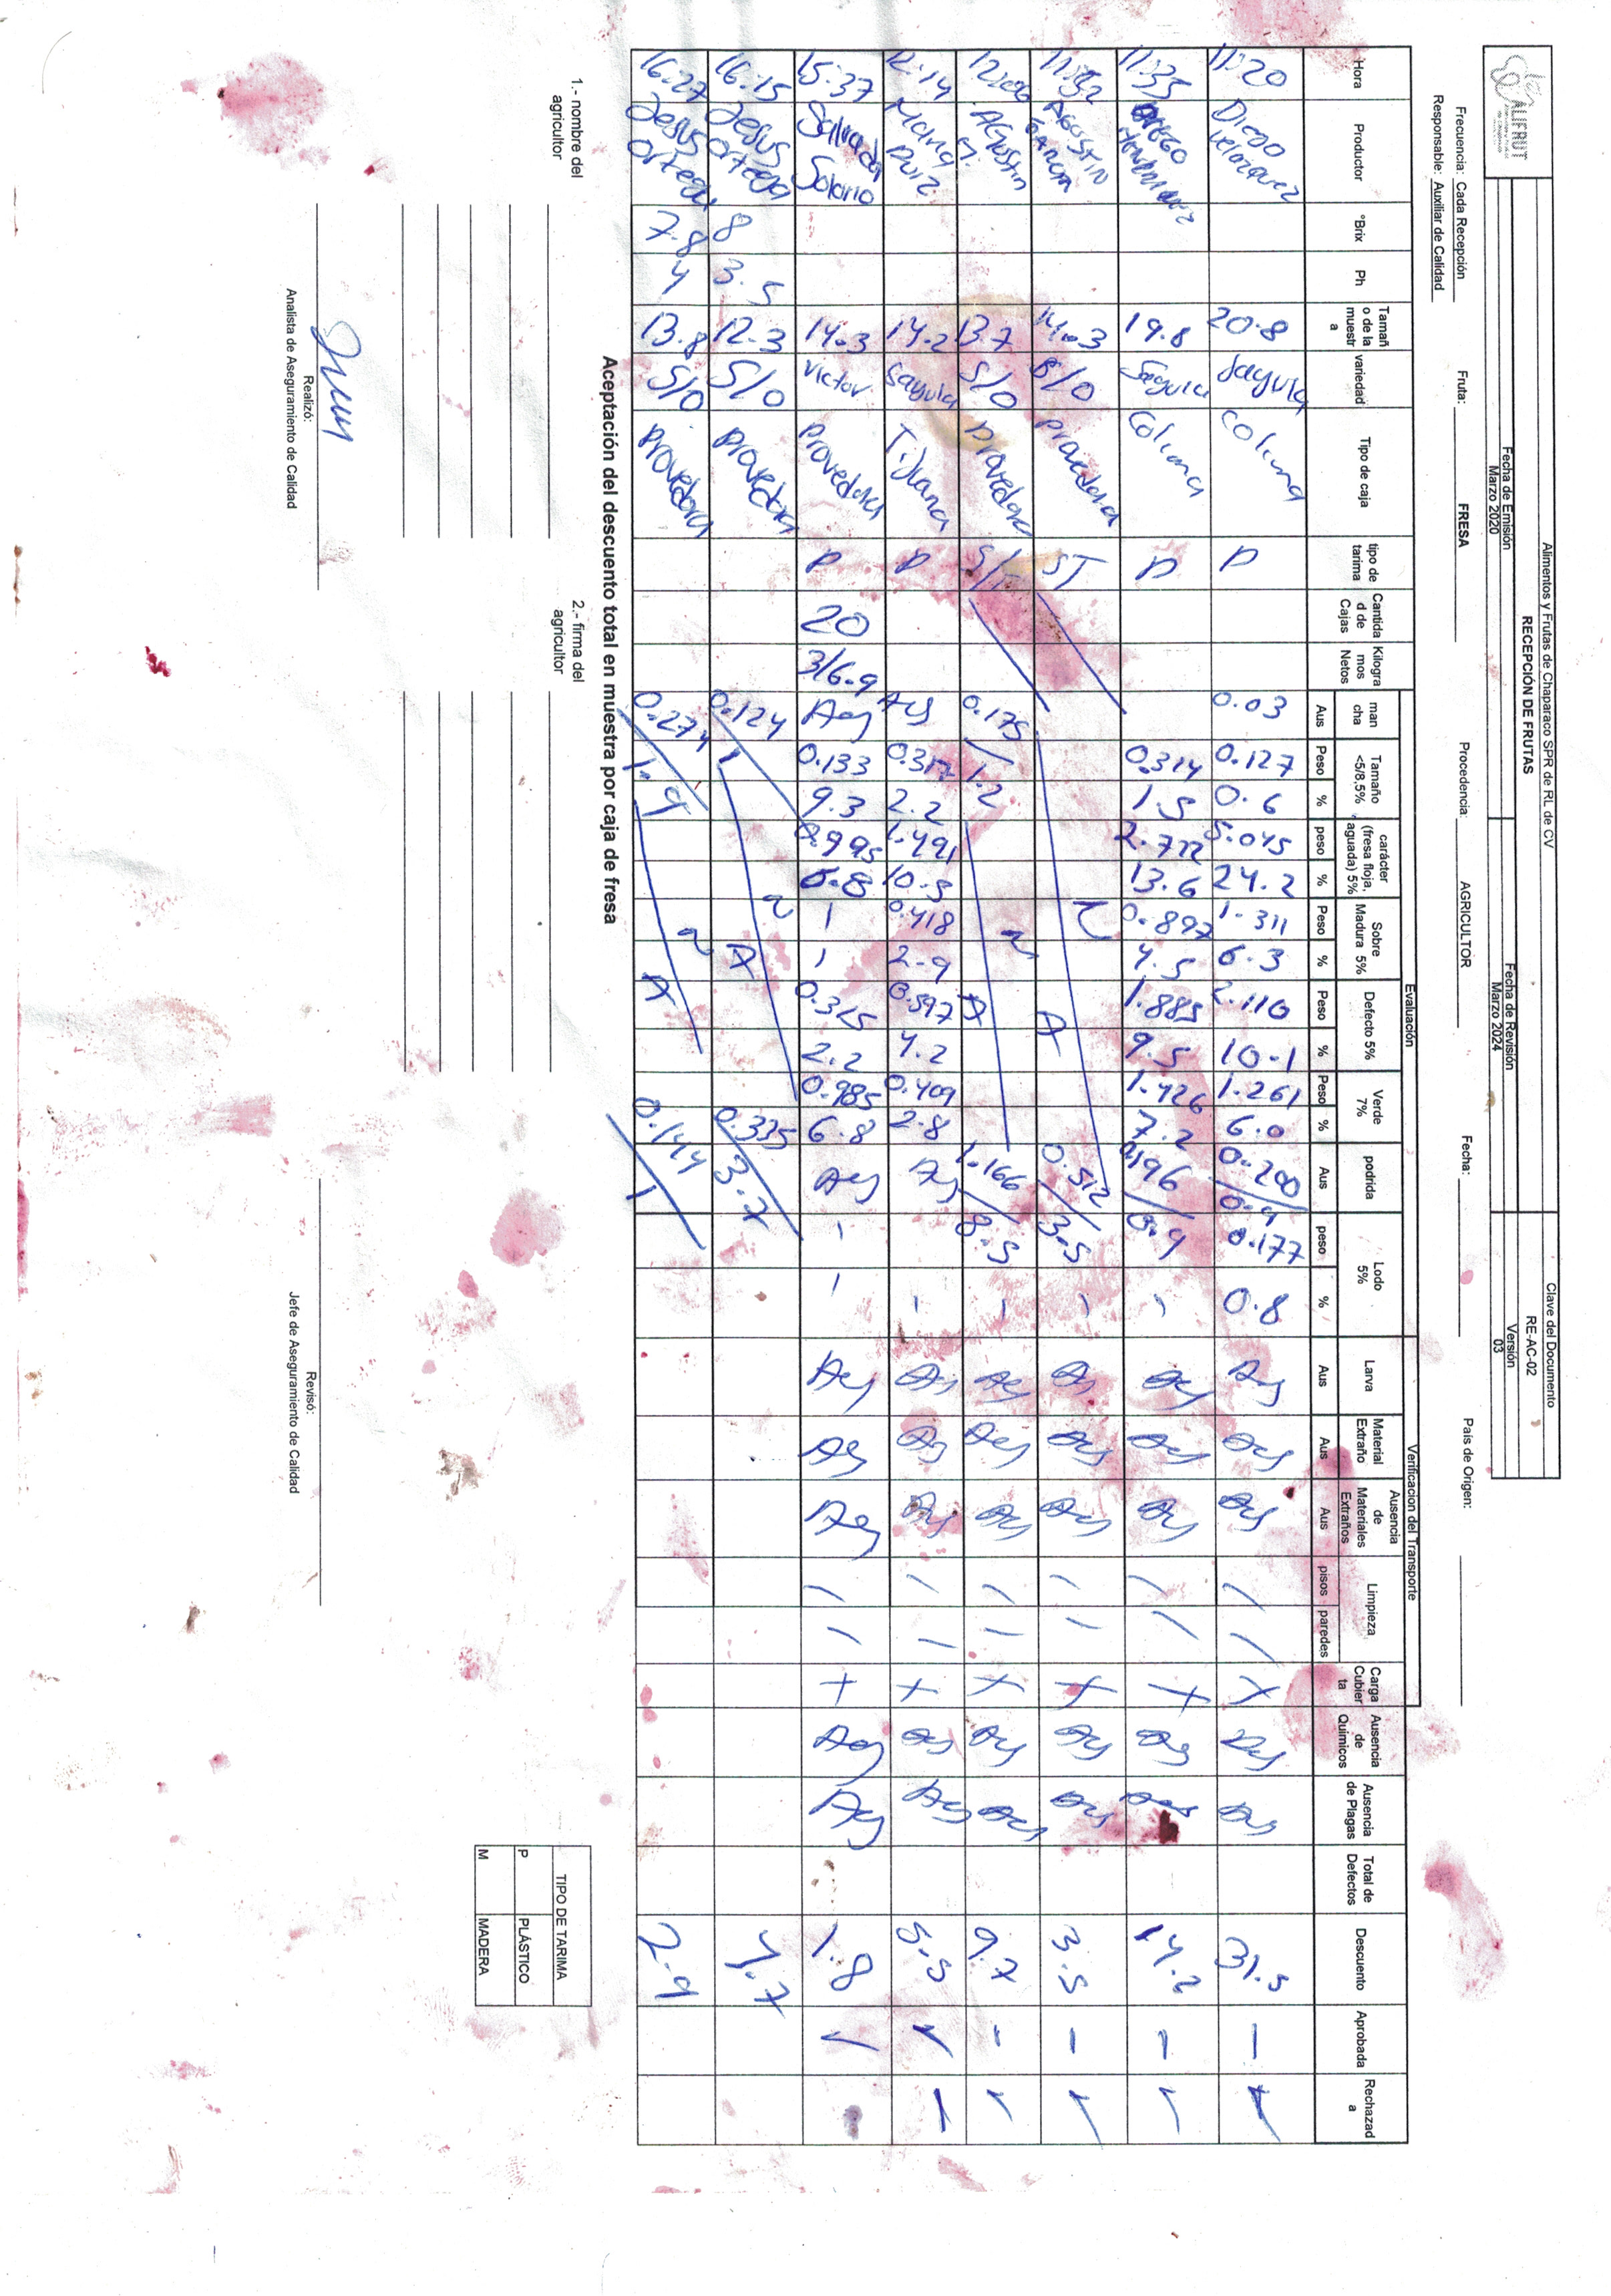 ALIFRUT
Alimentos y Frutas de Chaparaco SPR de RL de CV
RECEPCIÓN DE FRUTAS
Fecha de Emisión
Marzo 2020
Fecha de Revisión
Marzo 2024
Clave del Documento
RE-AC-02
Versión
03
Frecuencia: Cada Recepción Fruta: FRESA Procedencia: AGRICULTOR Fecha: País de Origen:
Responsable: Auxiliar de Calidad
Evaluación Verificacion del Transporte
Hora Productor °Brix Ph Tamaño de la muestra variedad Tipo de caja tipo de tarima Cantidad de Cajas Kilogramos Netos mancha Tamaño <5/8,5% carácter (fresa floja, aguada) 5% Sobre Madura 5% Defecto 5% Verde 7% podrida Lodo 5% Larva Material Extraño Ausencia de Materiales Extraños Limpieza Carga Cubierta Ausencia de Quimicos Ausencia de Plagas Total de Defectos Descuento Aprobada Rechazada
Aus Peso % peso % Peso % Peso % Peso % Aus peso % Aus Aus Aus pisos paredes
11:20 Diego Velazquez 20.8 Sayula Colima P 0.03 0.127 0.6 5.045 24.2 1.311 6.3 2.110 10.1 1.261 6.0 0.200 0.9 0.177 0.8 Aus Aus Aus / / X Aus Aus 31.5 — ✓
11:35 Diego 19.8 Sayula Colima P 0.314 1.5 2.722 13.6 0.897 4.5 1.885 9.5 1.426 7.2 0.196 0.9 - Aus Aus Aus / / X Aus Aus 14.2 — ✓
Agustin Garcia 14.3 S/O Provedora S/T N A 0.512 3.5 - Aus Aus Aus / / X Aus Aus 3.5 — ✓
12:06 Agustin 13.7 S/O Provedora S/T 0.175 1.2 N A 1.166 8.5 - Aus Aus Aus / / X Aus Aus 9.7 — ✓
12:14 Maria Ruiz 14.2 Sayula Tijuana P Aus 0.317 2.2 1.491 10.5 0.418 2.9 0.597 4.2 0.409 2.8 Aus - Aus Aus Aus / / X Aus Aus 5.5 ✓ —
15:37 Salvador Solorio 14.3 Victor Provedora P 20 316.9 Aus 0.133 9.3 - - 0.325 2.2 0.985 6.8 Aus - - Aus Aus Aus / / X Aus Aus 1.8 ✓
16:15 Jesus Ortega 8 3.5 12.3 S/O Provedora 0.124 1 N A 0.335 3.7 4.7
16:27 Jesus Ortega 7.8 4 13.8 S/O Provedora 0.274 1.9 N A 0.144 1 2.9
Aceptación del descuento total en muestra por caja de fresa
1.- nombre del agricultor
2.- firma del agricultor
TIPO DE TARIMA
P PLÁSTICO
M MADERA
Realizó:
Analista de Aseguramiento de Calidad
Revisó:
Jefe de Aseguramiento de Calidad